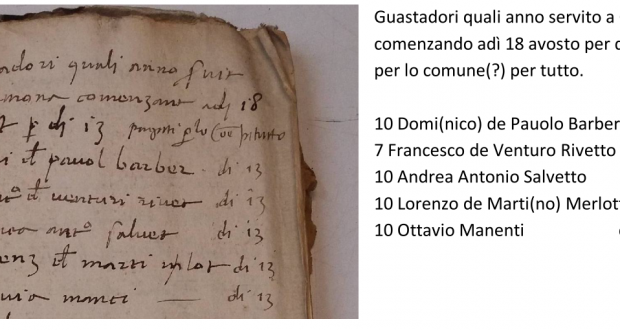 adori quali anno servit
mana comenzano adj 18
di 13 pagati p lo
d pauol barber di 13
d venturi rivet di 13
ant° salvet di 13
enz d marti mlot di 13
manēti di 13
Guastadori quali anno servito a
comenzando adì 18 avosto per
per lo comune(?) per tutto.
10 Domi(nico) de Pauolo Barber
7 Francesco de Venturo Rivetto
10 Andrea Antonio Salvetto
10 Lorenzo de Marti(no) Merlot
10 Ottavio Manenti